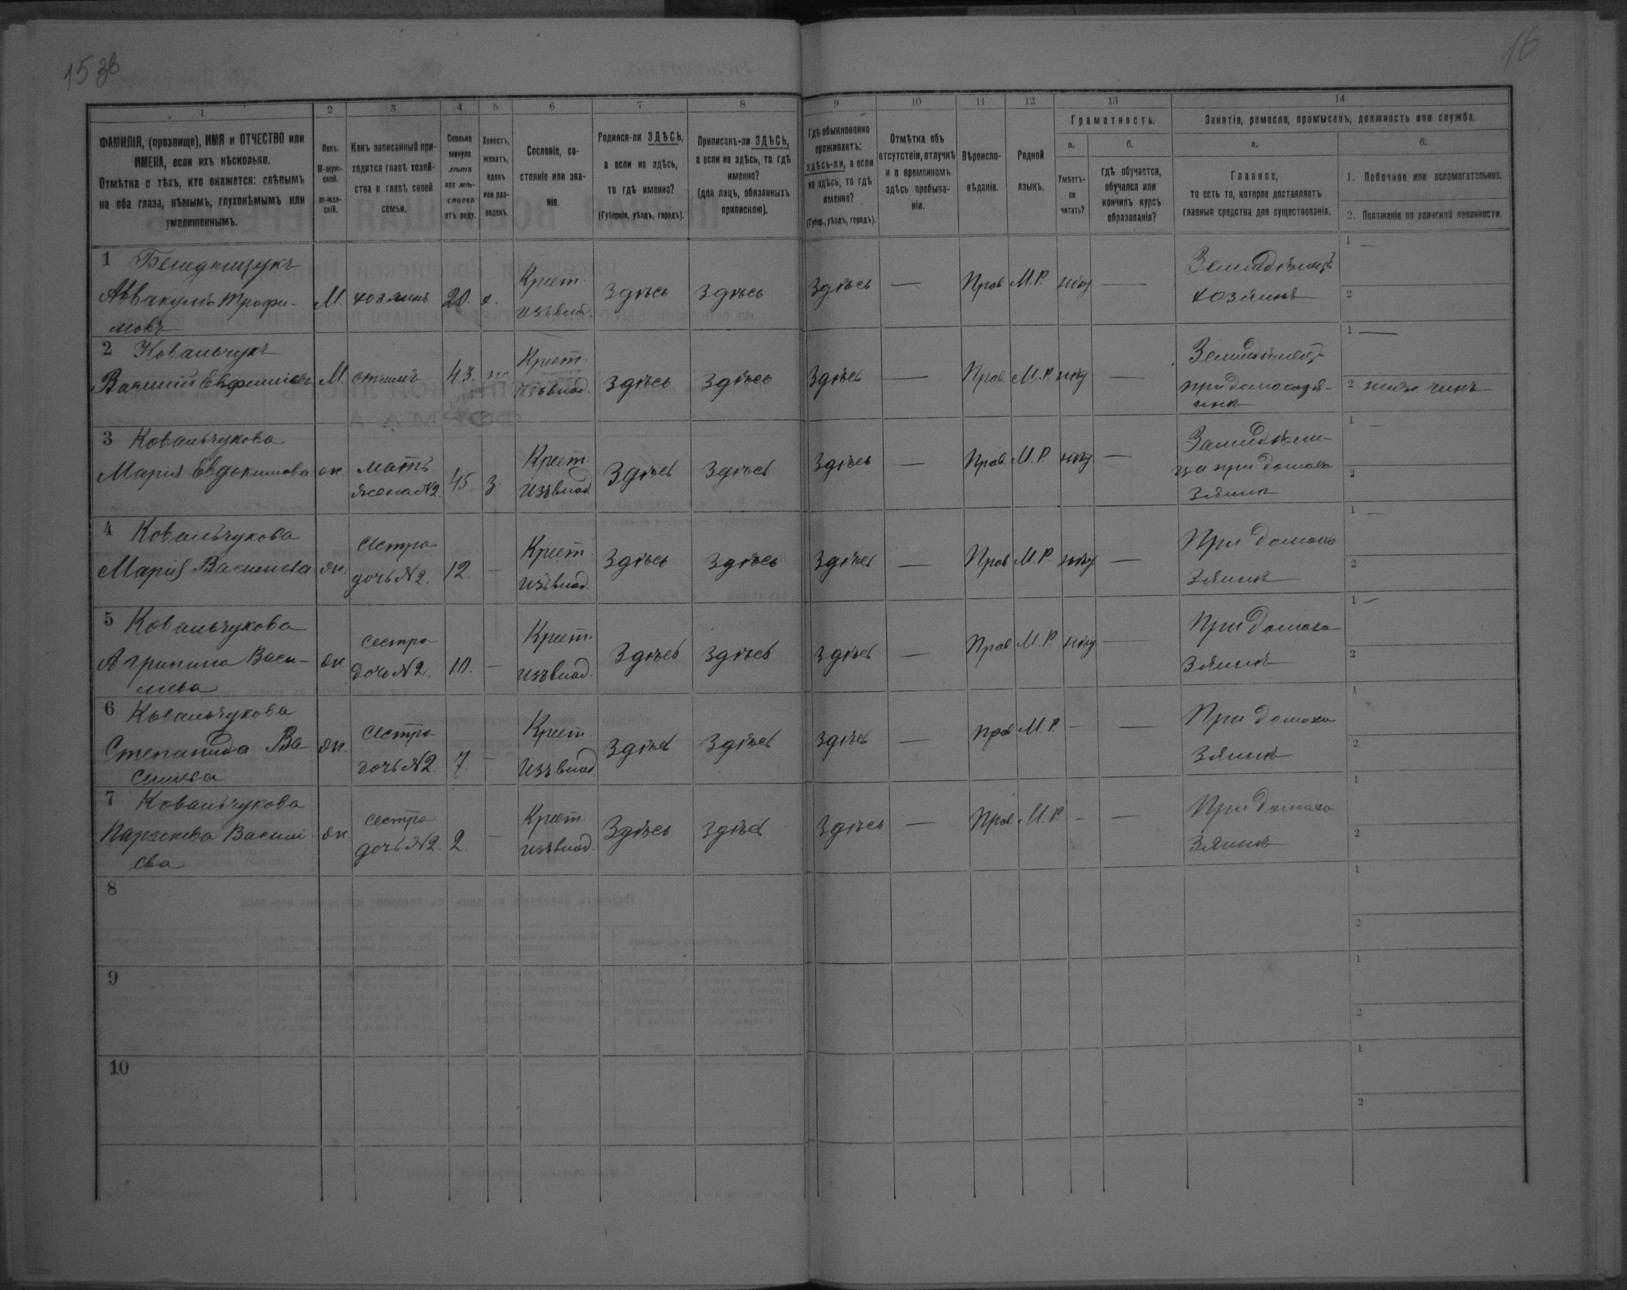 153 об
16
1
2
3
4
5
6
7
8
9
10
11
12
13
14
ФАМИЛІЯ, (прозвище), ИМЯ и ОТЧЕСТВО или
ИМЕНА, если ихъ нѣсколько.
Отмѣтка о тѣхъ, кто окажется: слѣпымъ
на оба глаза, нѣмымъ, глухонѣмымъ или
умалишеннымъ.
Полъ.
М-муж-
ской.
ж-жен-
скій.
Какъ записанный при-
ходится главѣ хозяй-
ства и главѣ своей
семьи.
Сколько
минуло
лѣтъ
или мѣ-
сяцевъ
отъ роду.
Холостъ,
женатъ,
вдовъ
или раз-
веденъ.
Сословіе, со-
стояніе или зва-
ніе.
Родился-ли ЗДѢСЬ,
а если не здѣсь,
то гдѣ именно?
(Губернія, уѣздъ, городъ).
Приписанъ-ли ЗДѢСЬ,
а если не здѣсь, то гдѣ
именно?
(для лицъ, обязанныхъ
припискою).
Гдѣ обыкновенно
проживаетъ:
здѣсь-ли, а если
не здѣсь, то гдѣ
именно?
(Губер., уѣздъ, городъ).
Отмѣтка объ
отсутствіи, отлучкѣ
и о временномъ
здѣсь пребыва-
ніи.
Вѣроиспо-
вѣданіе.
Родной
языкъ.
Грамотность.
а.
Умѣетъ-
ли
читать?
б.
гдѣ обучается,
обучался или
кончилъ курсъ
образованія?
Занятія, ремесло, промыселъ, должность или служба.
а.
Главное,
то есть то, которое доставляетъ
главныя средства для существованія.
б.
1. Побочное или вспомогательное.
2. Положеніе по воинской повинности.
1
Аввакумъ Трофи-
мовъ
М. хозяинъ 20. х.
Крест.
изъ влад.
Здѣсь Здѣсь Здѣсь — Прав М.Р. нѣтъ —
Земледѣлецъ
хозяинъ
1 —
2
2 Ковальчукъ
Василій Евфиміевъ М. отчимъ 43.
Крест.
изъ влад.
Здѣсь Здѣсь Здѣсь — Прав. М.Р. нѣтъ —
при домохозя-
инѣ
1 —
2 нижн. чинъ
3 Ковальчукова
Марія Евдокимова ж.
мать
жена №2. 45. з.
Крест.
изъ влад.
Здѣсь Здѣсь Здѣсь — Прав М.Р. нѣтъ —
Земледѣли-
ца при домохо
зяинѣ
1 —
2
4 Ковальчукова
Марія Васильева ж.
сестра
дочь №2. 12. —
Крест.
изъ влад.
Здѣсь Здѣсь Здѣсь — Прав М.Р. нѣтъ —
При домохо
зяинѣ
1 —
2
5 Ковальчукова
Агрипина Васи-
льева
ж.
сестра
дочь №2. 10. —
Крест.
изъ влад.
Здѣсь Здѣсь Здѣсь — Прав М.Р. нѣтъ —
При домохо
зяинѣ
1 —
2
6 Ковальчукова
Степанида Ва-
сильева
ж.
сестра
дочь №2. 7. —
Крест.
изъ влад.
Здѣсь Здѣсь Здѣсь — прав М.Р. — —
При домохо
зяинѣ
1
2
7 Ковальчукова
Параскева Василь
ева
ж.
сестра
дочь №2. 2. —
Крест.
изъ влад.
Здѣсь Здѣсь Здѣсь — Прав М.Р. — —
При домохо
зяинѣ
1
2
8
1
2
9
1
2
10
1
2